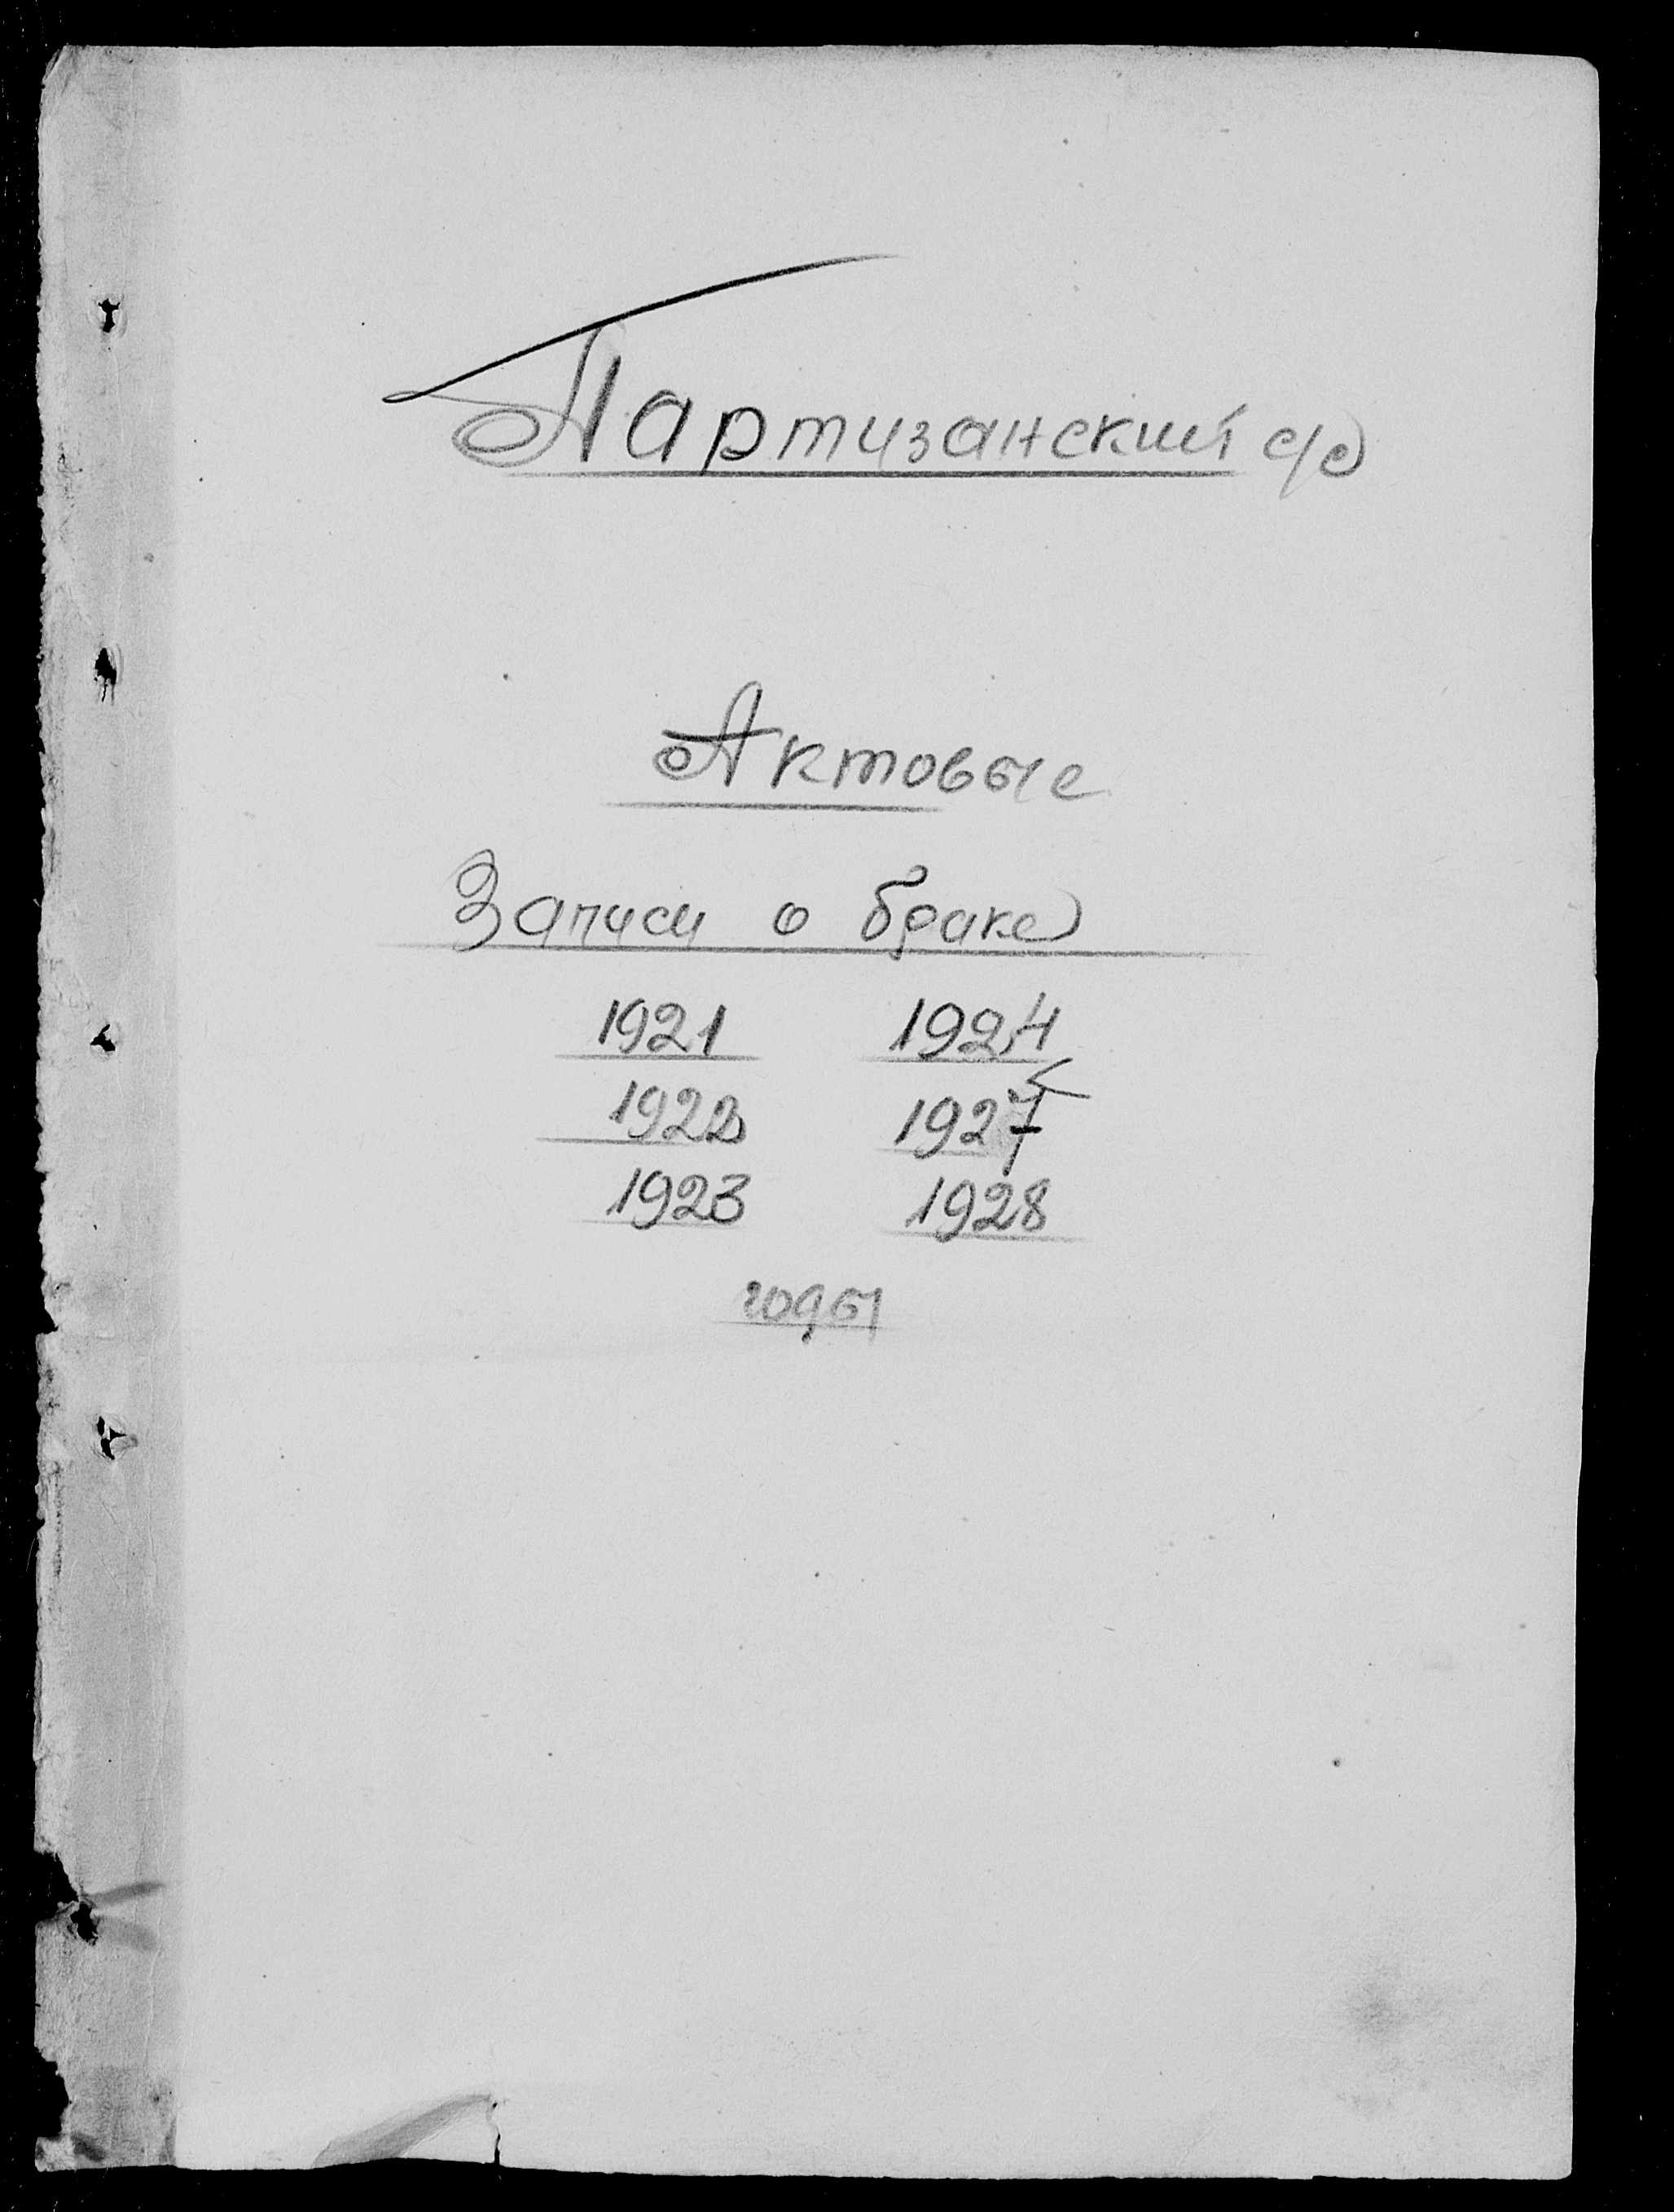 Партизанский с/с
Актовые
Записи о браке
1921 1924
1922 1927
1923 1928
годы